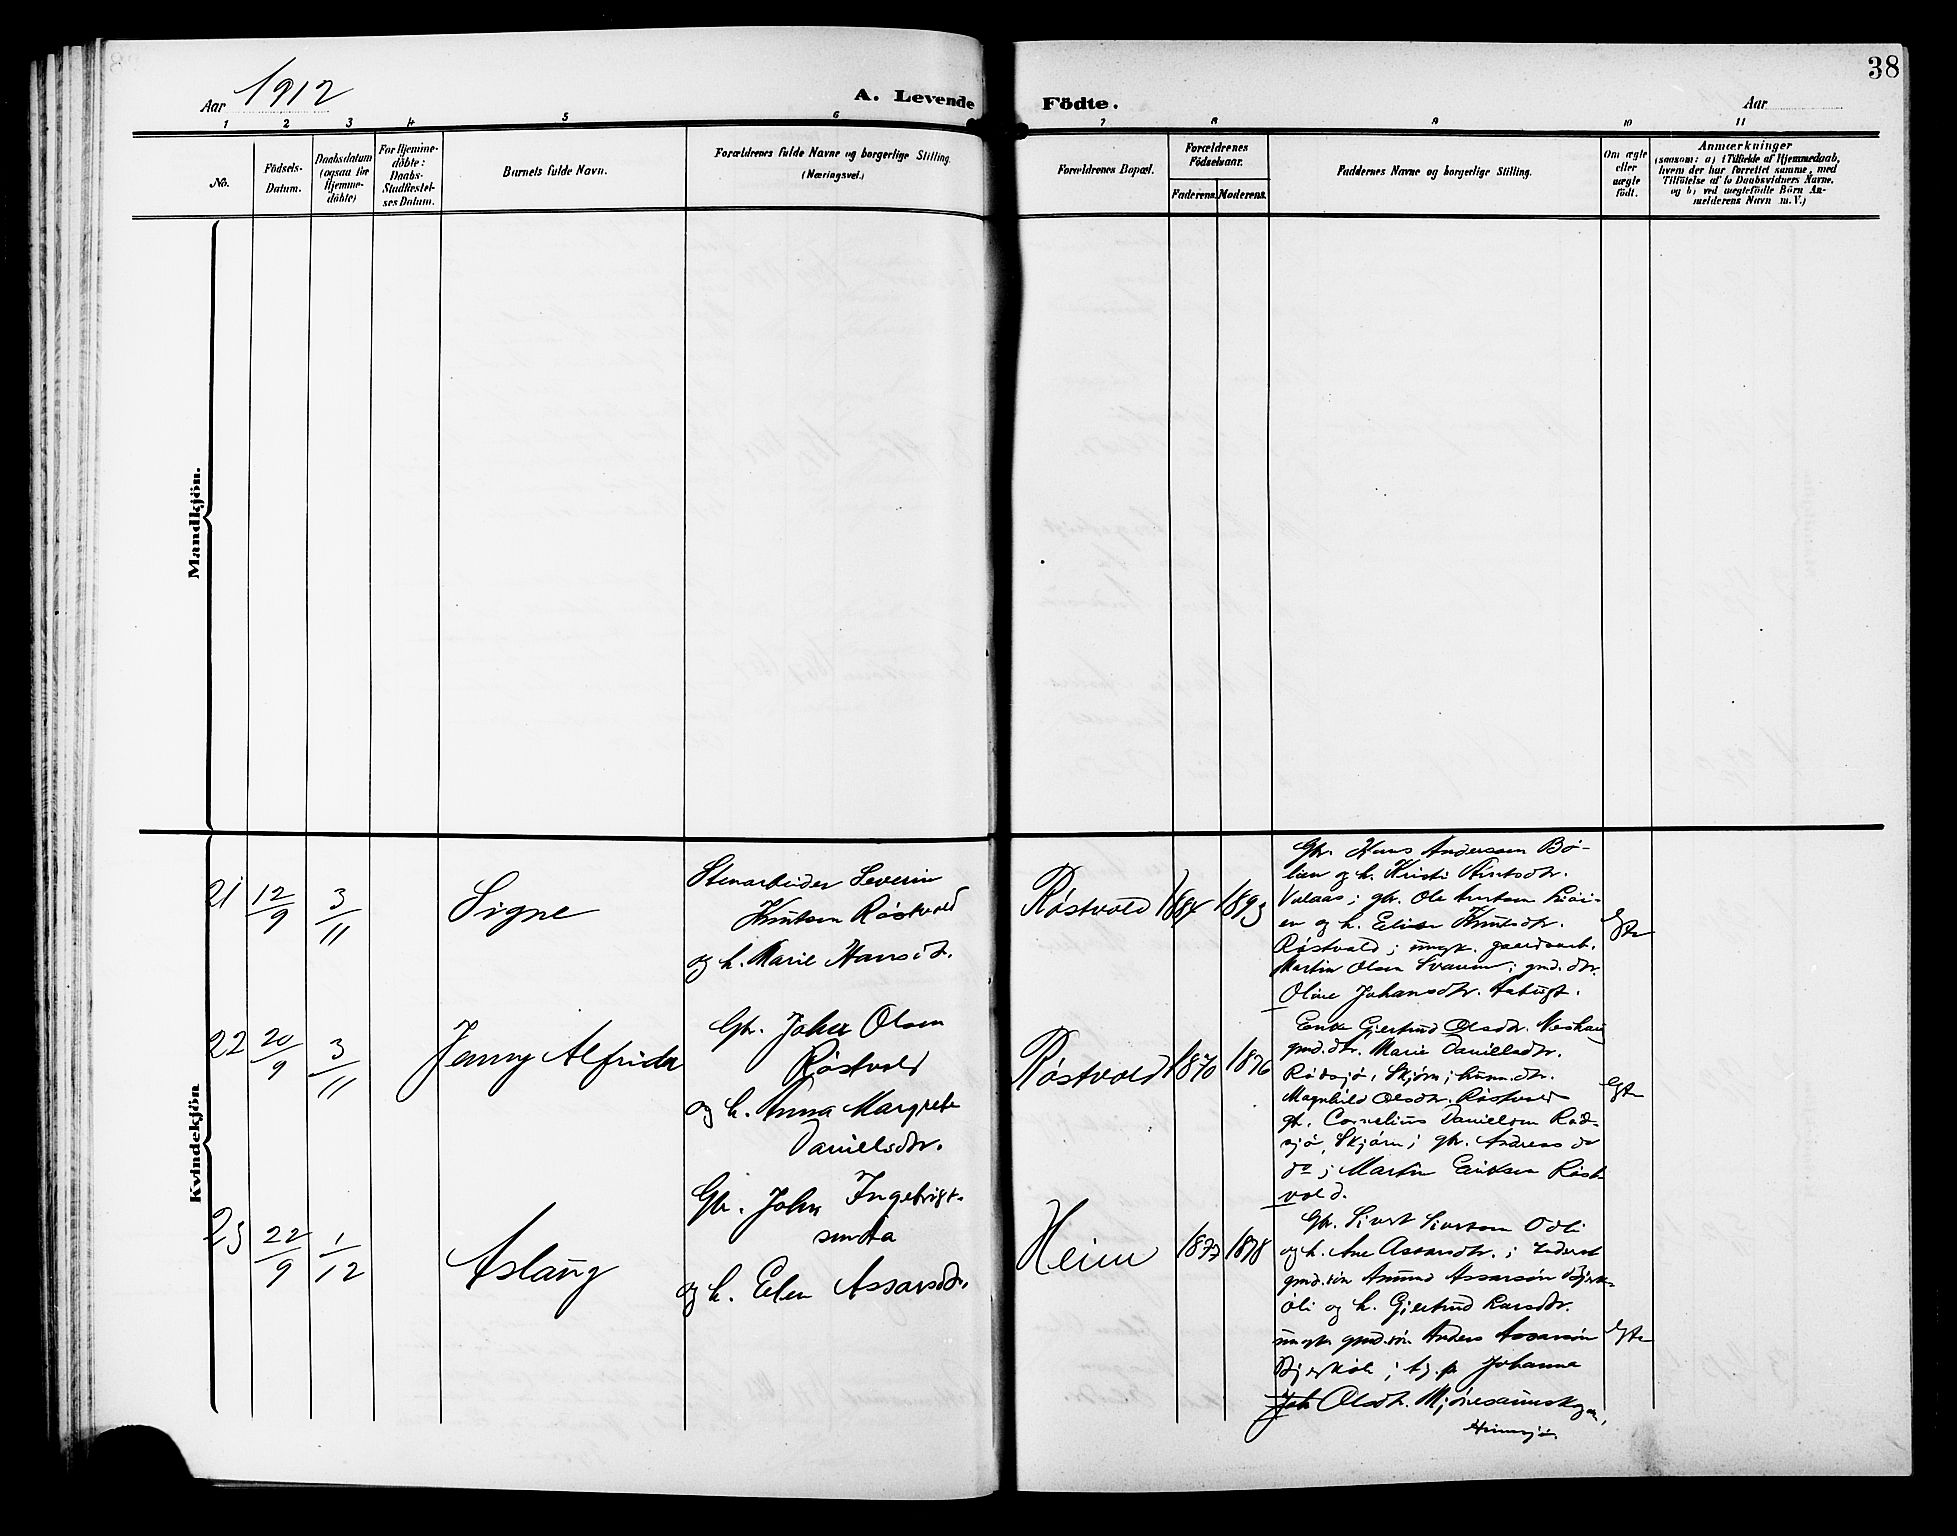 38
Aar 1912
A. Levende Födte.
Aar
1 2 3 4 5 6 7 8 9 10 11
No.
Födsels-
Datum.
Daabsdatum
(ogsaa for
Hjemme-
døbte)
For Hjemme-
døbte:
Daabs-
Stadfæstel-
ses Datum.
Barnets fulde Navn.
Forældrenes fulde Navne og borgerlige Stilling.
(Næringsvei.)
Forældrenes Bopæl.
Forældrenes
Födselsaar.
Faderens. Moderens.
Faddernes Navne og borgerlige Stilling.
Om ægte
eller
uægte
født.
Anmærkninger
(saasom: a) i Tilfælde af Hjemmedaab,
hvem der har forrettet samme, med
Tilföielse af to Daabsvidners Navne.
og b) ved uægtefödte Börn An-
melderens Navn m. V.)
Mandkjön.
Kvindekjön
21 12/9 3/11 Signe
Stenarbeider Severin
Knutsen Røstvold
og h. Marie Hansdtr.
Røstvold 1884 1893
Gbr. Hans Andersen Bø-
lien og h. Kristi
gbr. Ole
en og h. Knutsdtr.
Røstvold; ungk. gaardsarb.
Martin Olsen gmd. dtr.
Oline Johansdtr.
Egte
22 20/9 3/11 Jenny Alfrida
Gbr. Johan Olsen
Røstvold
og h. Anna Margrete
Danielsdtr.
Røstvold 1870 1876
Enke Gjertrud Olsdtr.
gmd. dtr. Marie Danielsdtr.
Rødsjø, Skjørn;
Magnhild Olsdtr. Røstvold
gbr. Cornelius Danielsen Rød-
sjø, Skjørn; gbr. Andreas do
do; Martin Eriksen Røst-
vold.
Egte
23 22/9 1/12 Aslaug
Gbr. John Ingebrigt-
sen
og h. Elen Assarsdtr.
Heim 1877 1878
Gbr. Sivert Sivertsen Odli
og h. Ane Assarsdtr.;
gmd. søn Amund Assarsøn Bjerk-
øli og h. Gjertrud Larsdtr.
ungk. gmd. søn Anders Assarsøn
Johanna
Joh Olsdtr.
Egte